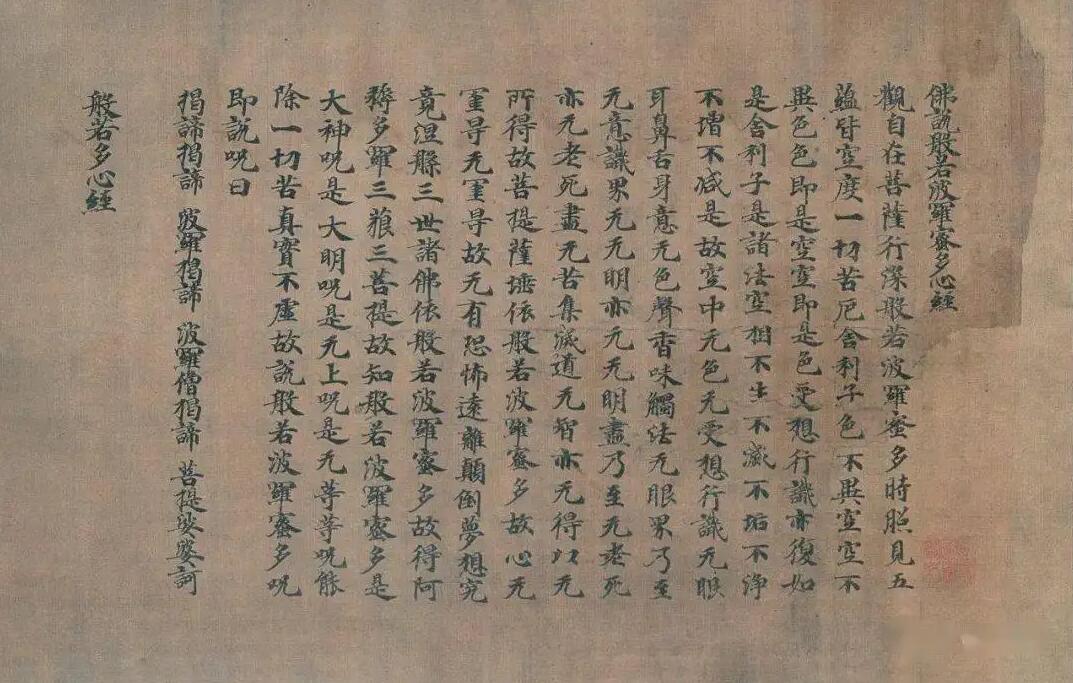 佛說般若波羅蜜多心經
觀自在菩薩行深般若波羅蜜多時照見五
蘊皆空度一切苦厄舍利子色不異空空不
異色色即是空空即是色受想行識亦復如
是舍利子是諸法空相不生不滅不垢不淨
不增不減是故空中无色无受想行識无眼
耳鼻舌身意无色聲香味觸法无眼界乃至
无意識界无无明亦无无明盡乃至无老死
亦无老死盡无苦集滅道无智亦无得以无
所得故菩提薩埵依般若波羅蜜多故心无
罣导无罣导故无有恐怖遠離顛倒夢想究
竟涅槃三世諸佛依般若波羅蜜多故得阿
耨多羅三藐三菩提故知般若波羅蜜多是
大神呪是大明呪是无上呪是无等等呪能
除一切苦真實不虛故說般若波羅蜜多呪
即說呪曰
揭諦揭諦 波羅揭諦 波羅僧揭諦 菩提娑婆訶
般若多心經